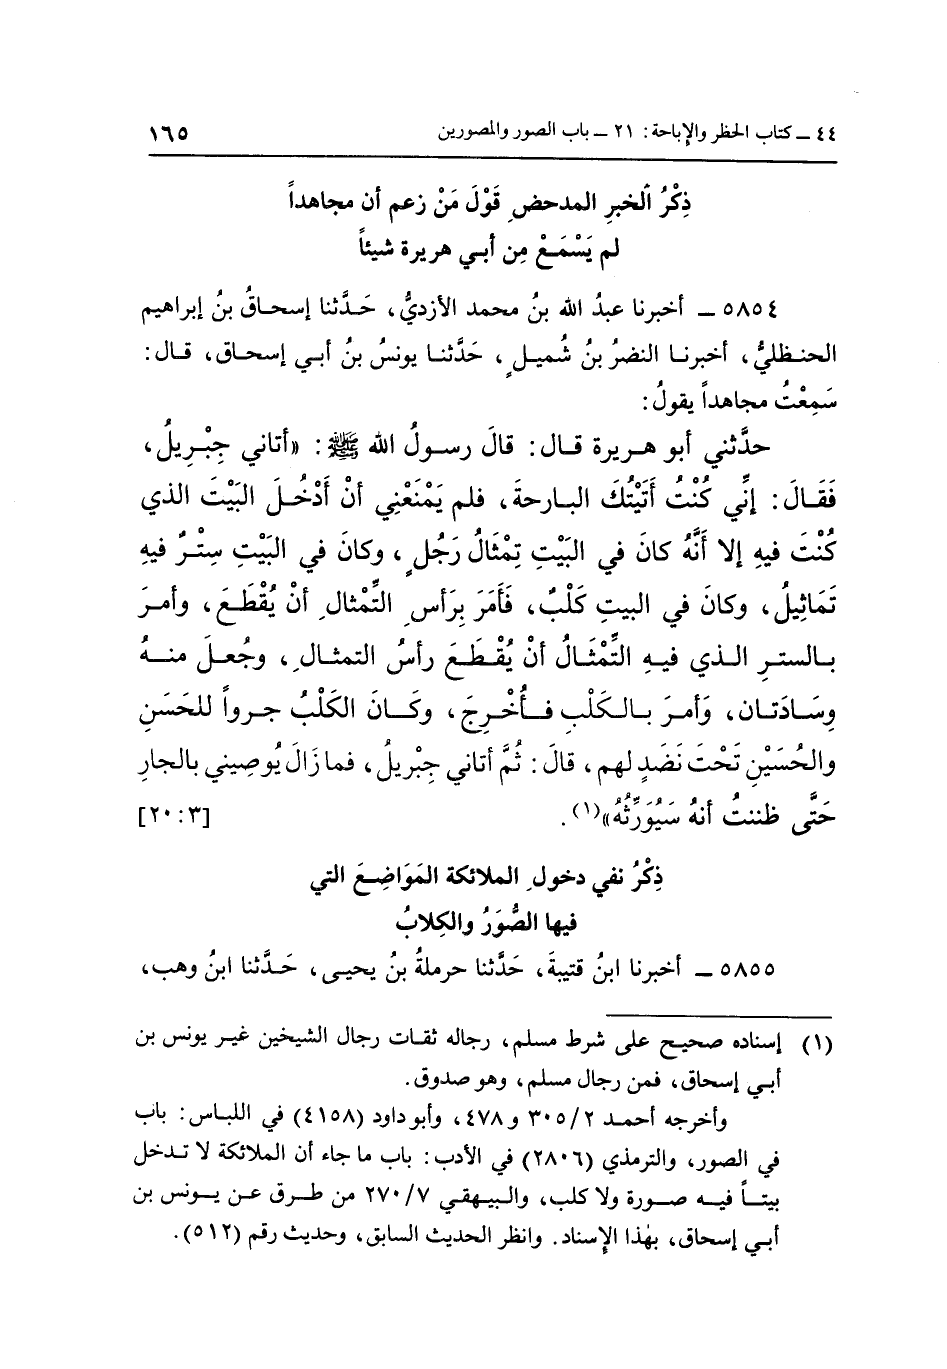 ٤٤ ــ كتاب الحظر والإباحة: ٢١ ــ باب الصور والمصورين ١٦٥
ذِكْرُ الخبرِ المدحضِ قَوْلَ مَنْ زعم أن مجاهداً
لم يَسْمَعْ مِن أبي هريرة شيئاً
٥٨٥٤ ــ أخبرنا عبدُ الله بنُ محمد الأزديُّ، حَدَّثنا إسحاقُ بنُ إبراهيم
الحنظليُّ، أخبرنا النضرُ بنُ شُميلٍ، حَدَّثنا يونسُ بنُ أبي إسحاق، قال:
سَمِعْتُ مجاهداً يقولُ:
حدَّثني أبو هريرة قال: قالَ رسولُ الله ﷺ: «أتاني جِبْريلُ،
فَقَالَ: إنِّي كُنْتُ أَتَيْتُكَ البارحةَ، فلم يَمْنَعْنِي أنْ أَدْخُلَ البَيْتَ الذي
كُنْتَ فيهِ إلا أنَّهُ كانَ في البَيْتِ تِمْثَالُ رَجُلٍ، وكانَ في البَيْتِ سِتْرٌ فيهِ
تَمَاثِيلُ، وكانَ في البيتِ كَلْبٌ، فَأَمَرَ بِرَأسِ التِّمْثالِ أنْ يُقْطَعَ، وأمرَ
بالسترِ الذي فيهِ التِّمْثَالُ أنْ يُقْطَعَ رأسُ التمثالِ، وجُعلَ منهُ
وِسَادَتان، وَأمرَ بالكَلْبِ فأُخْرِجَ، وكَانَ الكَلْبُ جرواً للحَسَنِ
والحُسَيْنِ تَحْتَ نَضَدٍ لهم، قالَ: ثُمَّ أتاني جِبْريلُ، فما زَالَ يُوصِيني بالجارِ
حَتَّى ظننتُ أنهُ سَيُوَرِّثُهُ»(١). [٢٠:٣]
ذِكْرُ نفي دخولِ الملائكة المَوَاضِعَ التي
فيها الصُّوَرُ والكِلابُ
٥٨٥٥ ــ أخبرنا ابنُ قتيبةَ، حَدَّثنا حرملةُ بنُ يحيى، حَدَّثنا ابنُ وهب،
(١) إسناده صحيح على شرط مسلم، رجاله ثقات رجال الشيخين غير يونس بن
أبي إسحاق، فمن رجال مسلم، وهو صدوق.
وأخرجه أحمد ٣٠٥/٢ و٤٧٨، وأبو داود (٤١٥٨) في اللباس: باب
في الصور، والترمذي (٢٨٠٦) في الأدب: باب ما جاء أن الملائكة لا تدخل
بيتاً فيه صورة ولا كلب، والبيهقي ٢٧٠/٧ من طرق عن يونس بن
أبي إسحاق، بهٰذا الإسناد. وانظر الحديث السابق، وحديث رقم (٥١٢).